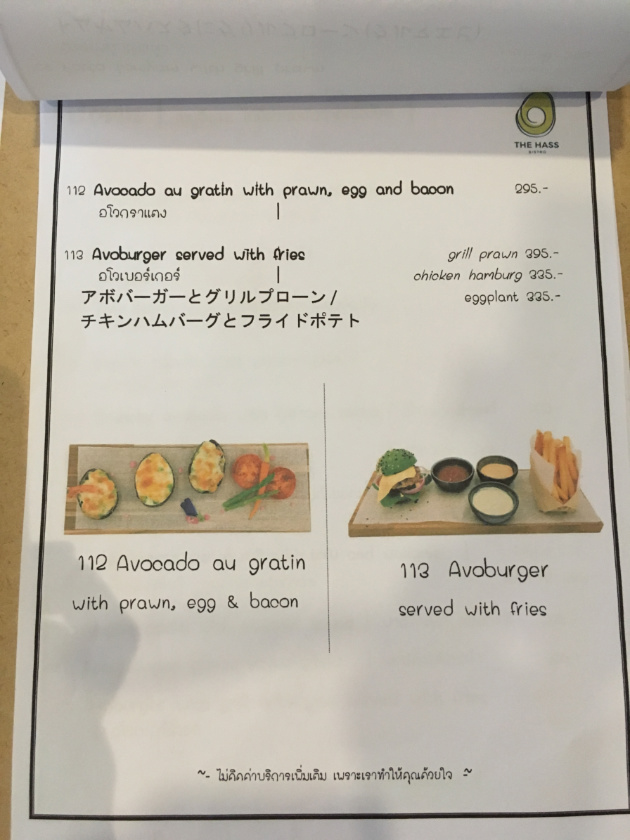 THE HASS
BISTRO
112 Avocado au gratin with prawn, egg and bacon 295.-
อโวกราแตง
113 Avoburger served with fries grill prawn 395.-
อโวเบอร์เกอร์ chicken hamburg 335.-
アボバーガーとグリルプローン/ eggplant 335.-
チキンハムバーグとフライドポテト
112 Avocado au gratin
with prawn, egg & bacon
113 Avoburger
served with fries
~- ไม่คิดค่าบริการเพิ่มเติม เพราะเราทำให้คุณด้วยใจ -~